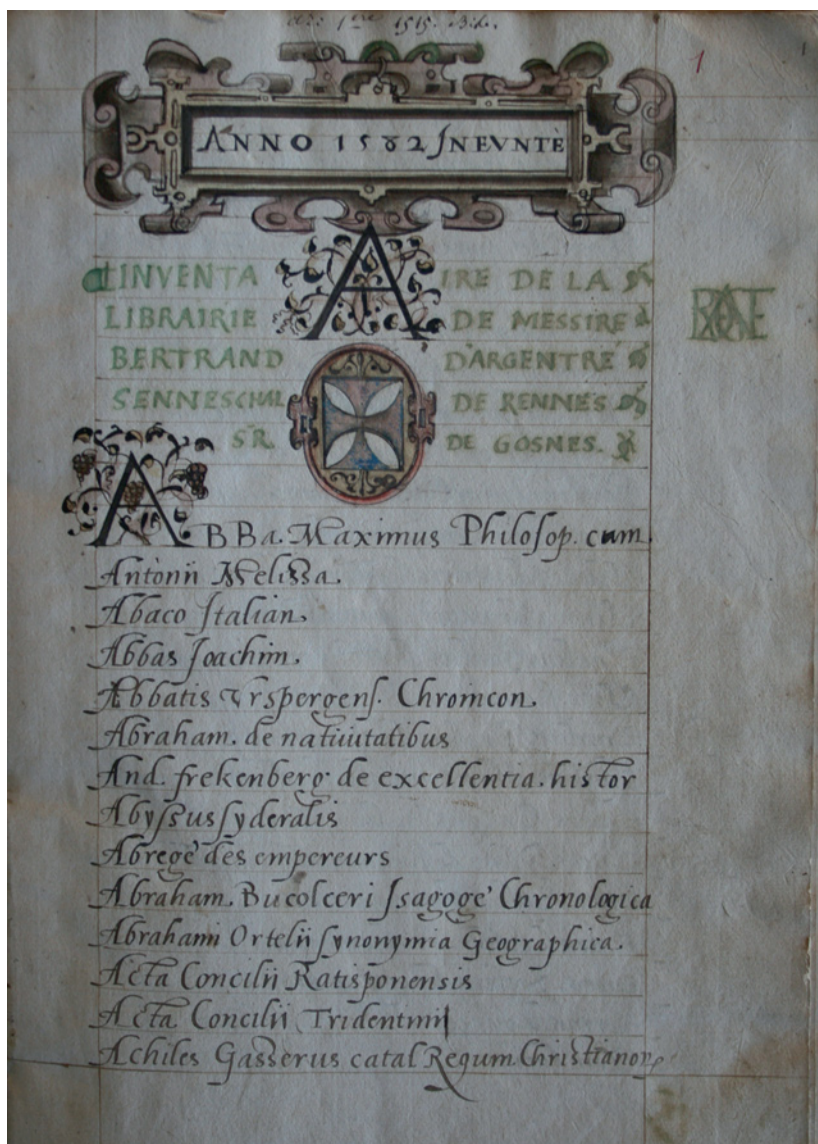 1515. Bib.
1
ANNO 1582 INEVNTE
LINVENTAIRE DE LA
LIBRAIRIE DE MESSIRE
BERTRAND D'ARGENTRE
SENNESCHAL DE RENNES
SR. DE GOSNES.
ABBa. Maximus Philosop. cum
Antonii Melissa.
Abaco Italian.
Abbas Joachim.
Abbatis Vrspergens. Chronicon.
Abraham. de natiuitatibus
And. frekenberg de excellentia. histor
Abyssus syderalis
Abregé des empereurs
Abraham. Bucolceri Isagogé Chronologica
Abrahami Ortelii synonymia Geographica.
Acta Concilii Ratisponensis
Acta Concilii Tridentinii
Achiles Gasserus catal Regum Christianor